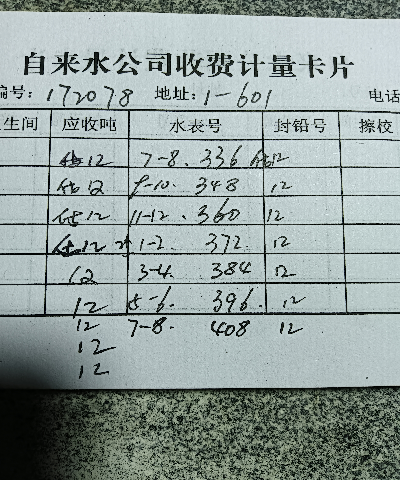 自来水公司收费计量卡片
编号: 172078 地址: 1-601 电话
生间 应收吨 水表号 封铅号 擦校
估12 7-8. 336 估12
估12 9-10. 348 12
估12 11-12. 360 12
估12 1-2. 372 12
12 3-4. 384 12
12 5-6. 396. 12
12 7-8. 408 12
12
12